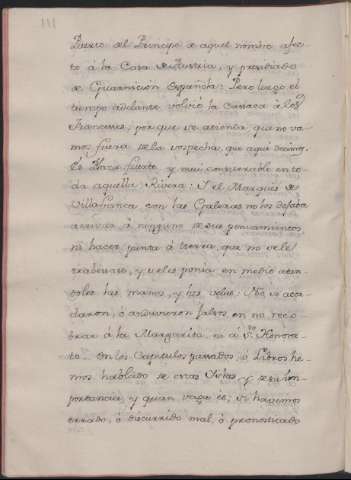 111
Puerto del Principe de aquel nombre afec-
to á la Casa de Austria, y presidiado
de Guarnicion Española: Pero luego el
tiempo adelante volvió la casaca á los
Franceses, por que se acienta que no va-
mos fuera de la sospecha, que aqui
fuerte y mui considerable en to-
da aquella Rivera: Y el Marques de
Villafranca con las Galeras no los dejaba
arrivar á ninguno de sus pensamientos
ni hacer punta á tierra, que no se le
y se les ponia en medio atan-
doles las manos, y las velas: No se acor-
daron, ó anduvieron faltos en no reco-
brar á la Margarita, ni á Sn. Honora-
to. En los Capitulos passados, ó Libros he-
mos hablado de estas Yslas, y de su im-
portancia, y quan vaga es; si havemos
errado, ó discurrido mal, ó pronosticado